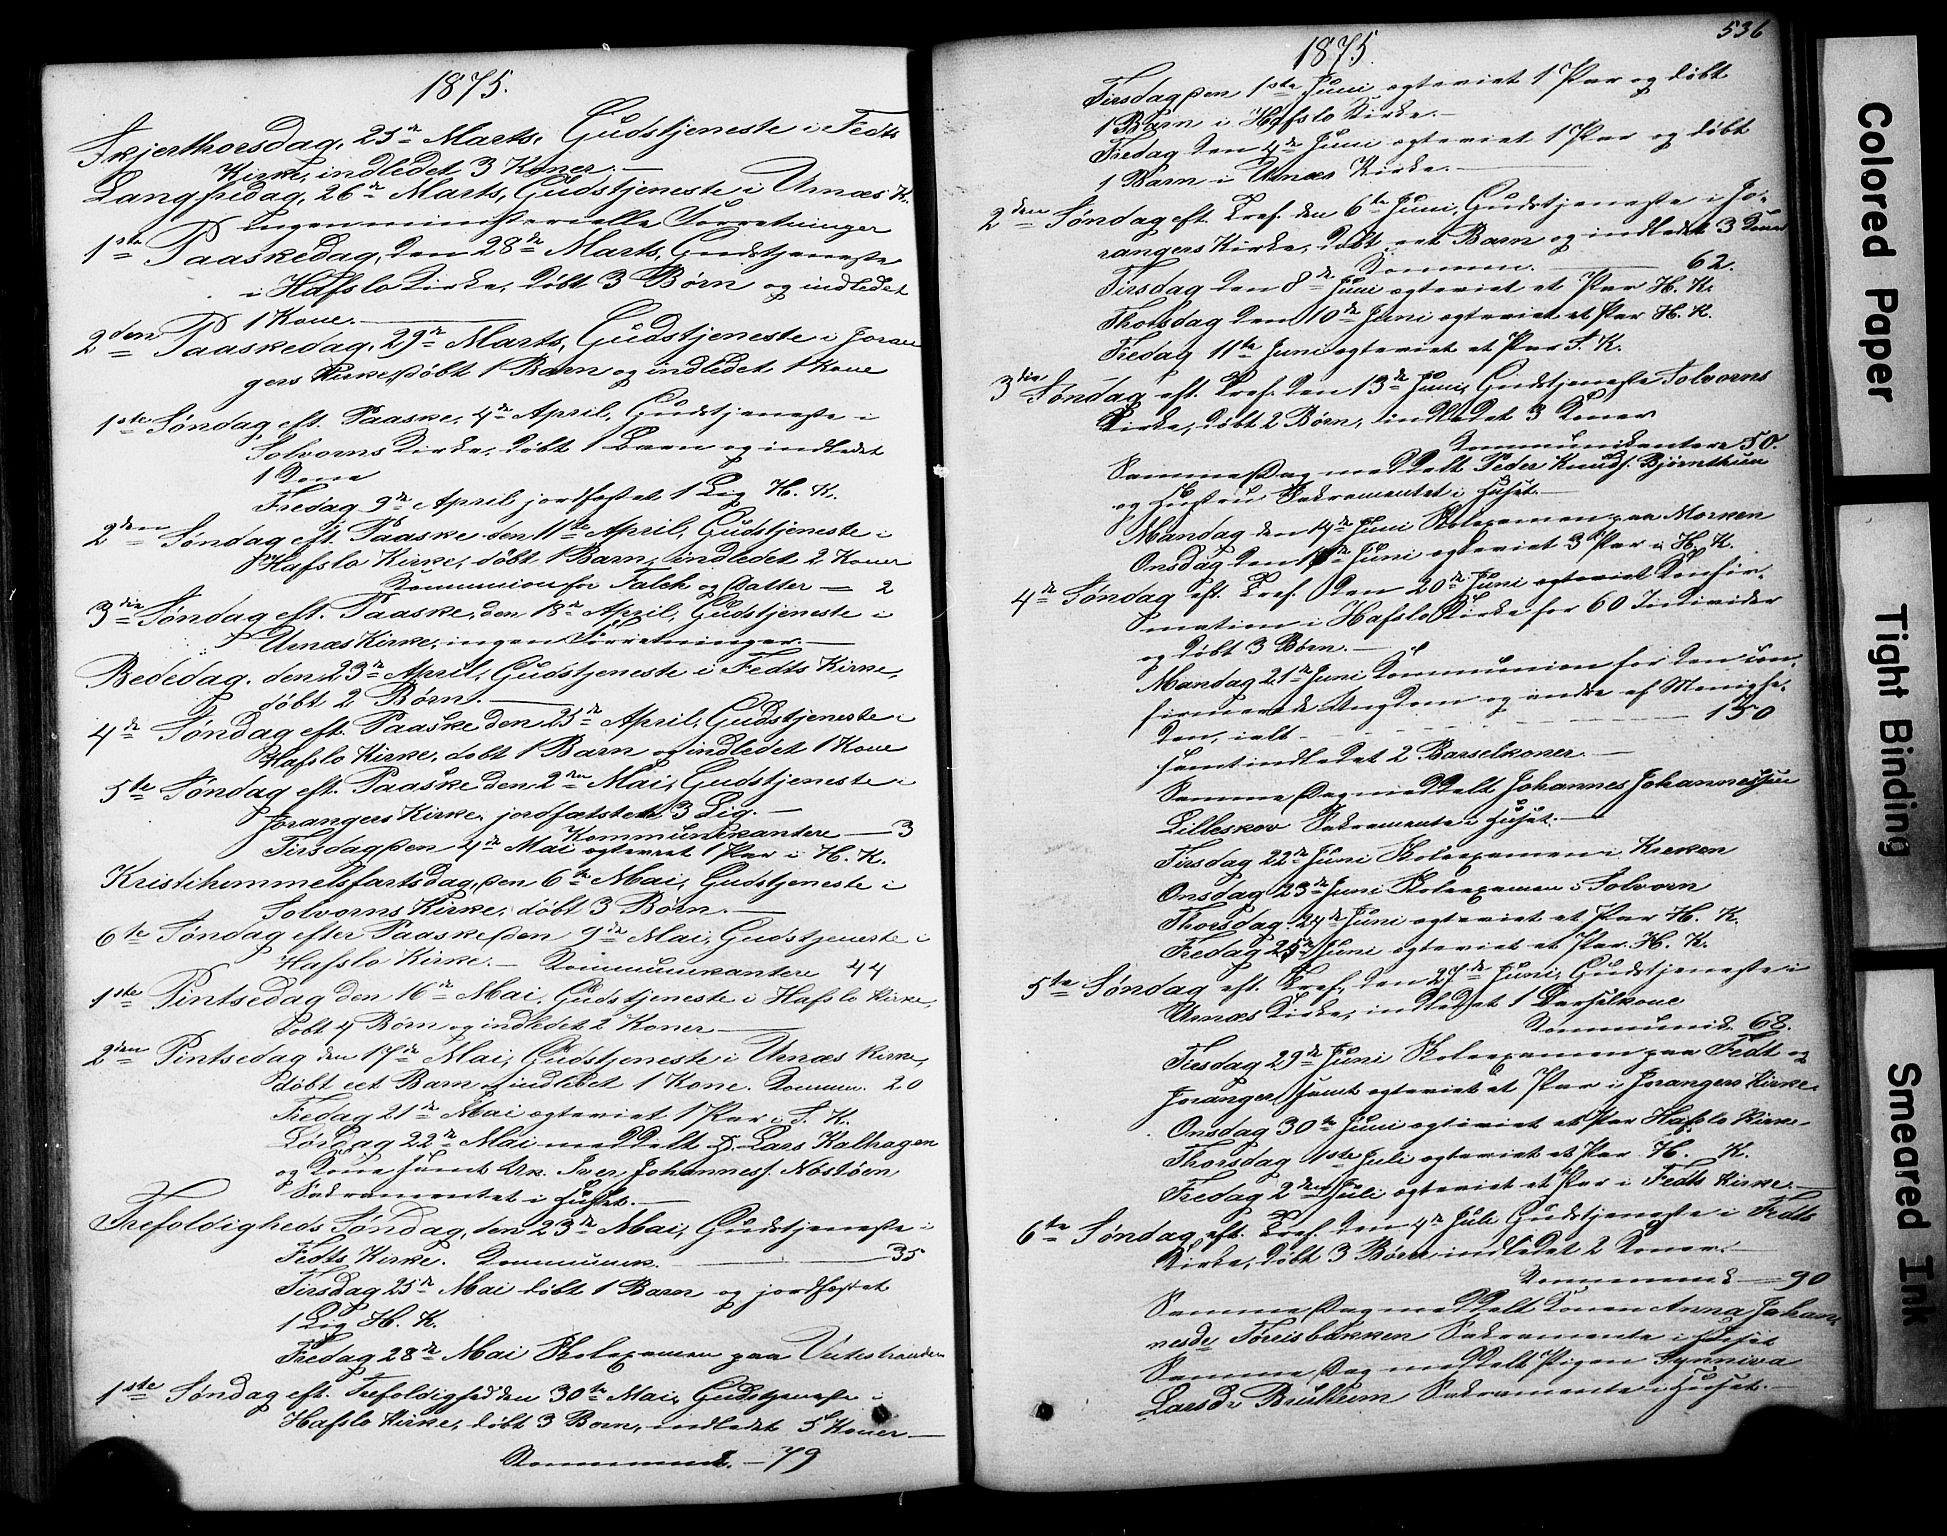 1875.
Skjerthorsdag, 25de Marts, Gudstjeneste i Fedts
Kirke, indledet 3 Koner. —
Langfredag, 26de Marts, Gudstjeneste i Urnæs K.
Ingen ministerielle Forretninger
1ste Paaskedag, den 28de Marts, Gudstjeneste
i Hafslo Kirke, døbt 3 Børn og indledet
1 Kone. —
2den Paaskedag, 29de Marts, Gudstjeneste i Joran
gers Kirke, døbt 1 Barn og indledet 1 Kone
1ste Søndag eft. Paaske, 4de April, Gudstjeneste i
Solvorns Kirke, døbt 1 Barn og indledet
1 Kone
Fredag 9de April jordfæstet 1 Lig H. K.
2den Søndag eft. Paaske den 11te April, Gudstjeneste i
Hafslo Kirke, døbt 1 Barn, indledet 2 Koner
Kommunion for Falch og Datter — 2
3die Søndag eft. Paaske, den 18de April, Gudstjeneste i
Urnæs Kirke, ingen Forretninger. —
Bededag, den 23de April, Gudstjeneste i Fedts Kirke,
døbt 2 Børn. —
4de Søndag eft. Paaske den 25de April, Gudstjeneste i
Hafslo Kirke, døbt 1 Barn og indledet 1 Kone
5te Søndag eft. Paaske den 2den Mai, Gudstjeneste i
Jorangers Kirke, jordfæstet 3 Lig. —
Kommunikantere — 3
Tirsdag den 4de Mai ægteviet 1 Par i H. K.
Kristihimmelsfartsdag, den 6te Mai, Gudstjeneste i
Solvorns Kirke, døbt 3 Børn. —
6te Søndag efter Paaske, den 9de Mai, Gudstjeneste i
Hafslo Kirke. — Kommunikantere 44
1ste Pintsedag den 16de Mai, Gudstjeneste i Hafslo Kirke,
døbt 4 Børn og indledet 2 Koner —
2den Pintsedag den 17de Mai, Gudstjeneste i Urnæs Kirke,
døbt eet Barn og indledet 1 Kone. Kommun. 20
Fredag 21de Mai ægteviet 1 Par i S. K.
Lørdag 22de Mai meddelt Lars Kalhagen
og Kone samt Iver Johanness. Nøstøen
Sakramentet i Huset. —
Trefoldigheds Søndag, den 23de Mai, Gudstjeneste i
Fedts Kirke. Kommunik. — 35
Tirsdag 25de Mai døbt 1 Barn og jordfæstet
1 Lig H. K.
Fredag 28de Mai Skoleexamen paa Veitestranden
1ste Søndag eft. Trefoldighed den 30te Mai, Gudstjeneste i
Hafslo Kirke, døbt 3 Børn, indledet 5 Koner —
Kommunik. — 79
536
1875.
Tirsdag den 1ste Juni ægteviet 1 Par og døbt
1 Barn i Hafslo Kirke. —
Fredag den 4de Juni ægteviet 1 Par og døbt
1 Barn i Urnæs Kirke. —
2den Søndag eft. Tref. den 6te Juni, Gudstjeneste i Jo-
rangers Kirke, døbt eet Barn og indledet 3 Koner
Kommun. — 62.
Tirsdag den 8de Juni ægteviet et Par H. K.
Thorsdag den 10de Juni ægteviet et Par H. K.
Fredag 11te Juni ægteviet et Par S. K.
3die Søndag eft. Tref. den 13de Juni, Gudstjeneste Solvorns
Kirke, døbt 2 Børn, indledet 3 Koner
Kommunikantere 50.
Samme Dag meddelt Peder Knuds. Bjørnthun
og Hustru Sakramentet i Huset. —
Mandag den 14de Juni Skoleexamen paa Morken
Onsdag den Juni ægteviet 3 Par i H. K.
4de Søndag eft. Tref. den 20de Juni Konfir-
mation i Hafslo Kirke for 60 Individer
og døbt 3 Børn. —
Mandag 21de Juni Kommunion for den con-
firmerede Ungdom og andre af Menighe-
den, ialt — 150
samt indledet 2 Barselkoner. —
Samme Dag meddelt Johannes Johannessen
Lilleskov Sakramente i Huset. —
Tirsdag 22de Juni Skoleexamen i Kreken
Onsdag 23de Juni Skoleexamen i Solvorn
Thorsdag 24de Juni ægteviet et Par H. K.
Fredag 25de Juni ægteviet et Par H. K.
5te Søndag eft. Tref. den 27de Juni, Gudstjeneste i
Urnæs Kirke, indledet 1 Barselkone
Kommunik. 68.
Tirsdag 29de Juni Skoleexamen paa Fedt og
Joranger samt ægteviet et Par i Jorangers Kirke.
Onsdag 30te Juni ægteviet et Par Hafslo Kirke.
Thorsdag 1ste Juli ægteviet et Par H. K.
Fredag 2den Juli ægteviet et Par i Fedts Kirke. —
6te Søndag eft. Tref. den 4de Juli Gudstjeneste i Fedts
Kirke, døbt 3 Børn indledet 2 Koner. —
Kommunik. — 90
Samme Dag meddelt Konen Anna Johan-
nesdr Sakramente i Huset
Samme Dag meddelt Pigen Synniva
Larsdr Bruheim Sakramente i Huset. —
Colored Paper
Tight Binding
Smeared Ink